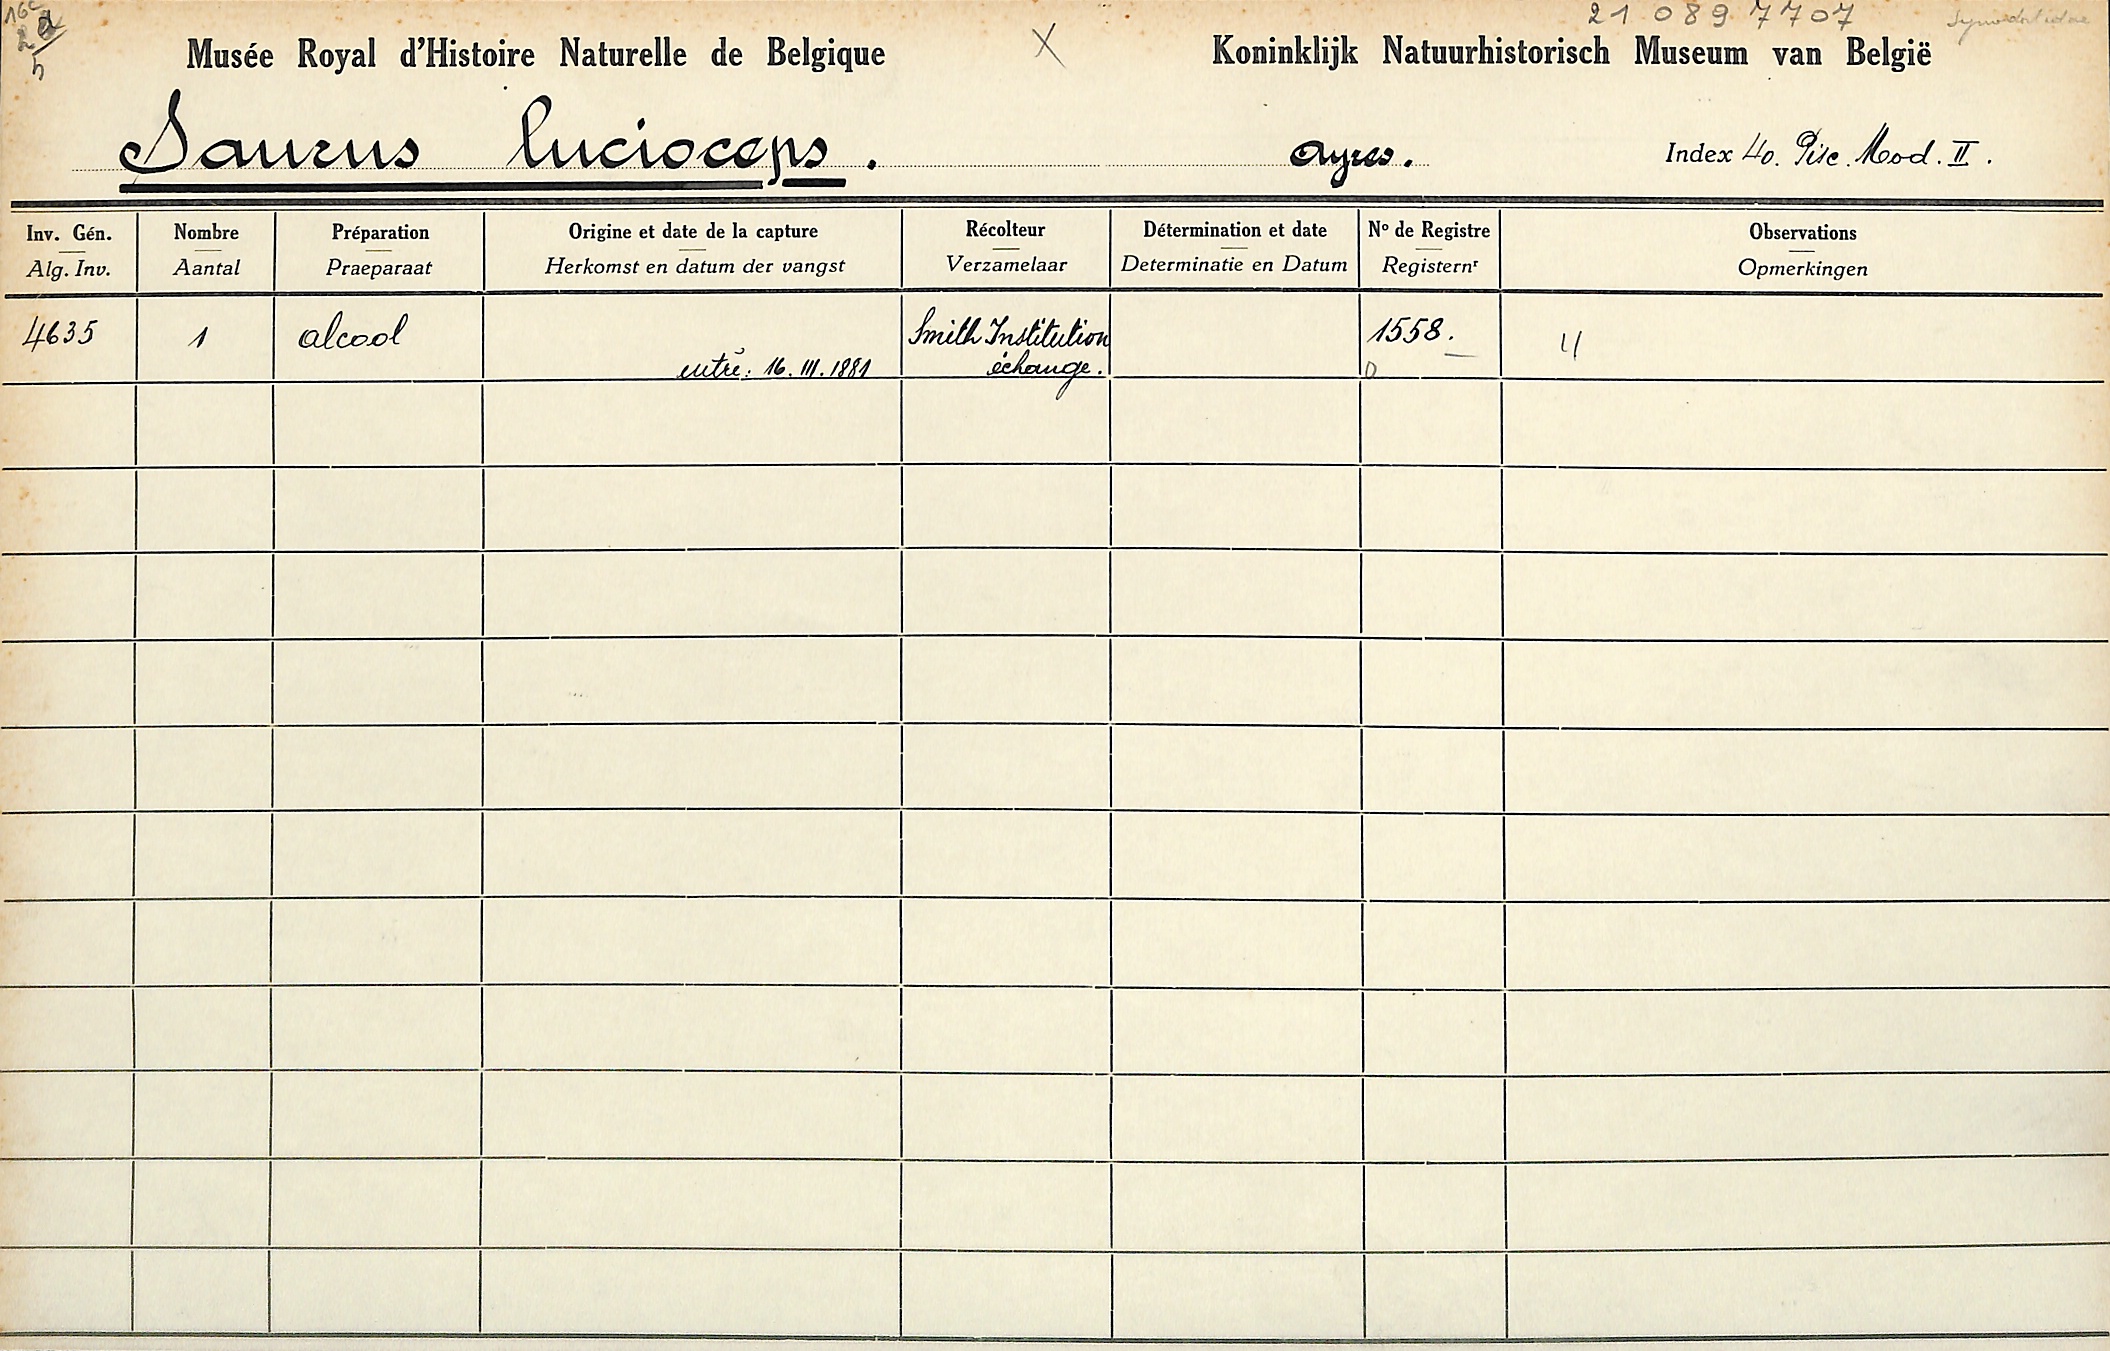 16c
21 089 7707 Synodontidae
Musée Royal d'Histoire Naturelle de Belgique X Koninklijk Natuurhistorisch Museum van België
Saurus lucioceps. Ayres. Index 40. Pisc. Mod. II.
Inv. Gén. Nombre Préparation Origine et date de la capture Récolteur Détermination et date No de Registre Observations
Alg. Inv. Aantal Praeparaat Herkomst en datum der vangst Verzamelaar Determinatie en Datum Registernr Opmerkingen
4635 1 alcool Smith Institution 1558.
entré: 16. III. 1881 échange.